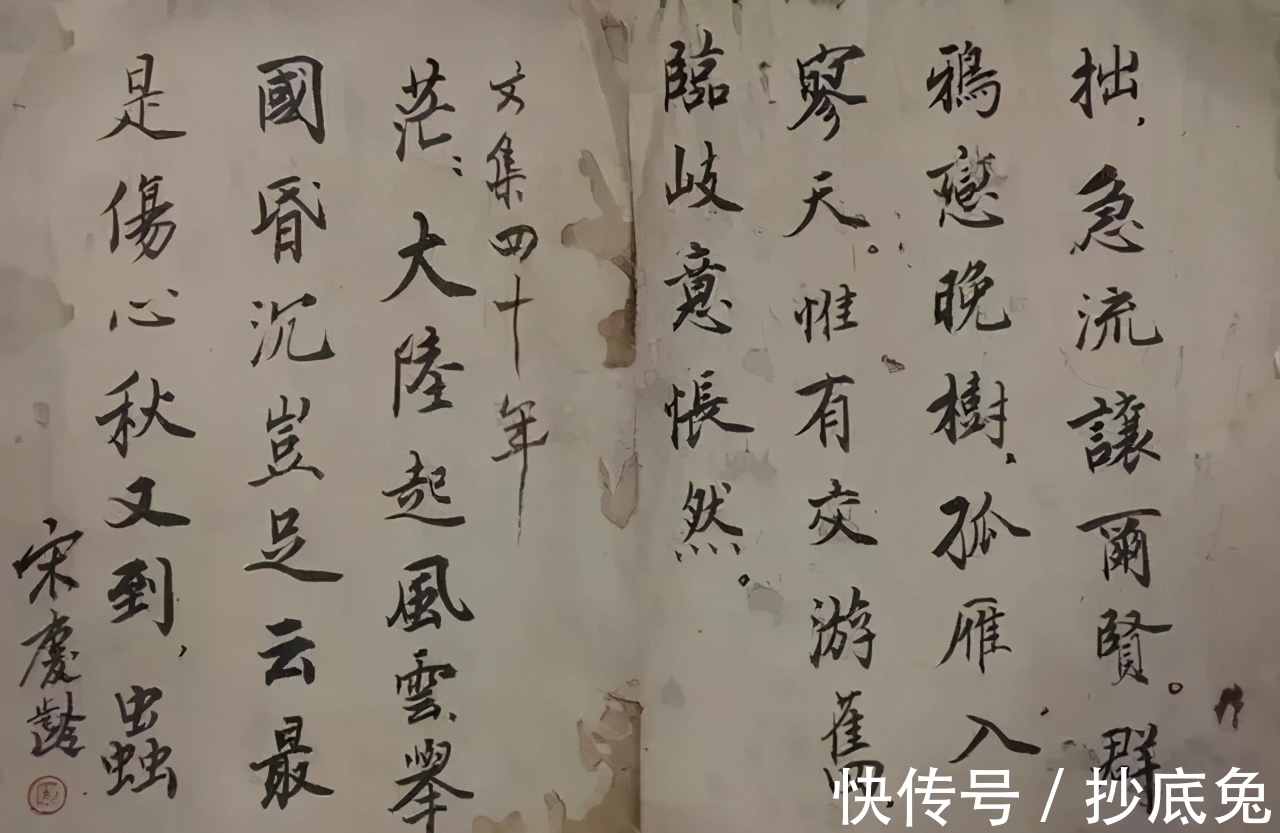 拙,急流讓爾賢。群
鴉戀晚樹,孤雁入
寥天。惟有交游舊四
臨歧意悵然。
文集四十年
茫;大陸起風雲舉
國昏沉豈足云最
是傷心秋又到,虫蟲
宋慶齡
快传号 / 抄底兔